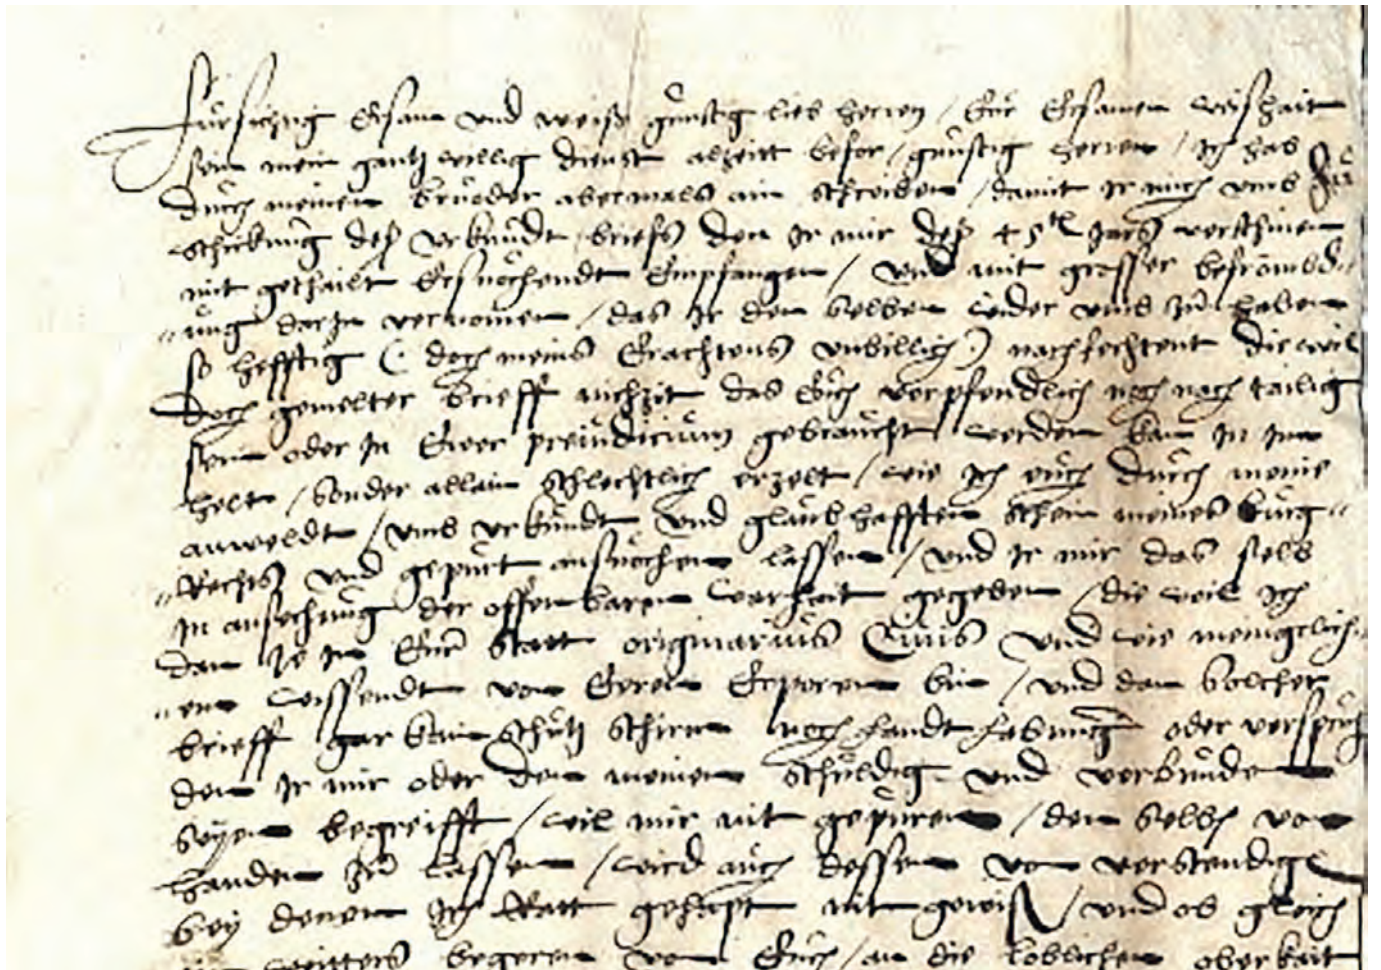 fürsichtig Ersam und weiss günstig lieb herren / Eur Ersamen weishait
sein mein gantz willig dienst alzeitt befor / günstig herren / ich hab
durch meinen brueder abermals ain schreiben / damit ir mich umb
schickung des urkundt brieffs den ir mir des 45 jars verschinen
mit gethailt Ersuochendt Empfangen / und mit grosser befrömbd
ung dar in vernomen / das ir den selben wider umb zu haben
so hefftig ( doch meins Erachtens unbillich ) nachfechtent die weil
doch gemelter brieff nichzit das Euch verpfendlich noch nach tailig
sein oder in Ewer preiudicium gebraucht werden kan in im
helt / sonder allain schlechtlich erzelt / wie ich euch durch meine
anweldt / umb urkundt und glaubhafften schein meines burg
Rechts und gepurt ansuochen lassen / und ir mir das selb
in ansechung der offenbaren warhait gegeben / die weil ich
dan ie in Eur Statt originarius Civis und wie meniglich
en wissendt von Eeren Erporen bin / und dan solcher
brieff gar kain schutz schirm noch handthabung oder verspruch
den ir mir oder den meinen schuldig und verbunden
seyen begreifft / wil mir nit gepüren / den selben von
handen zu lassen / wird auch dessen von verstendigen
bey denen ich Ratt gehapt nit gewis / und ob gleich
weitters begeren von Euch / an die loblichen oberkait